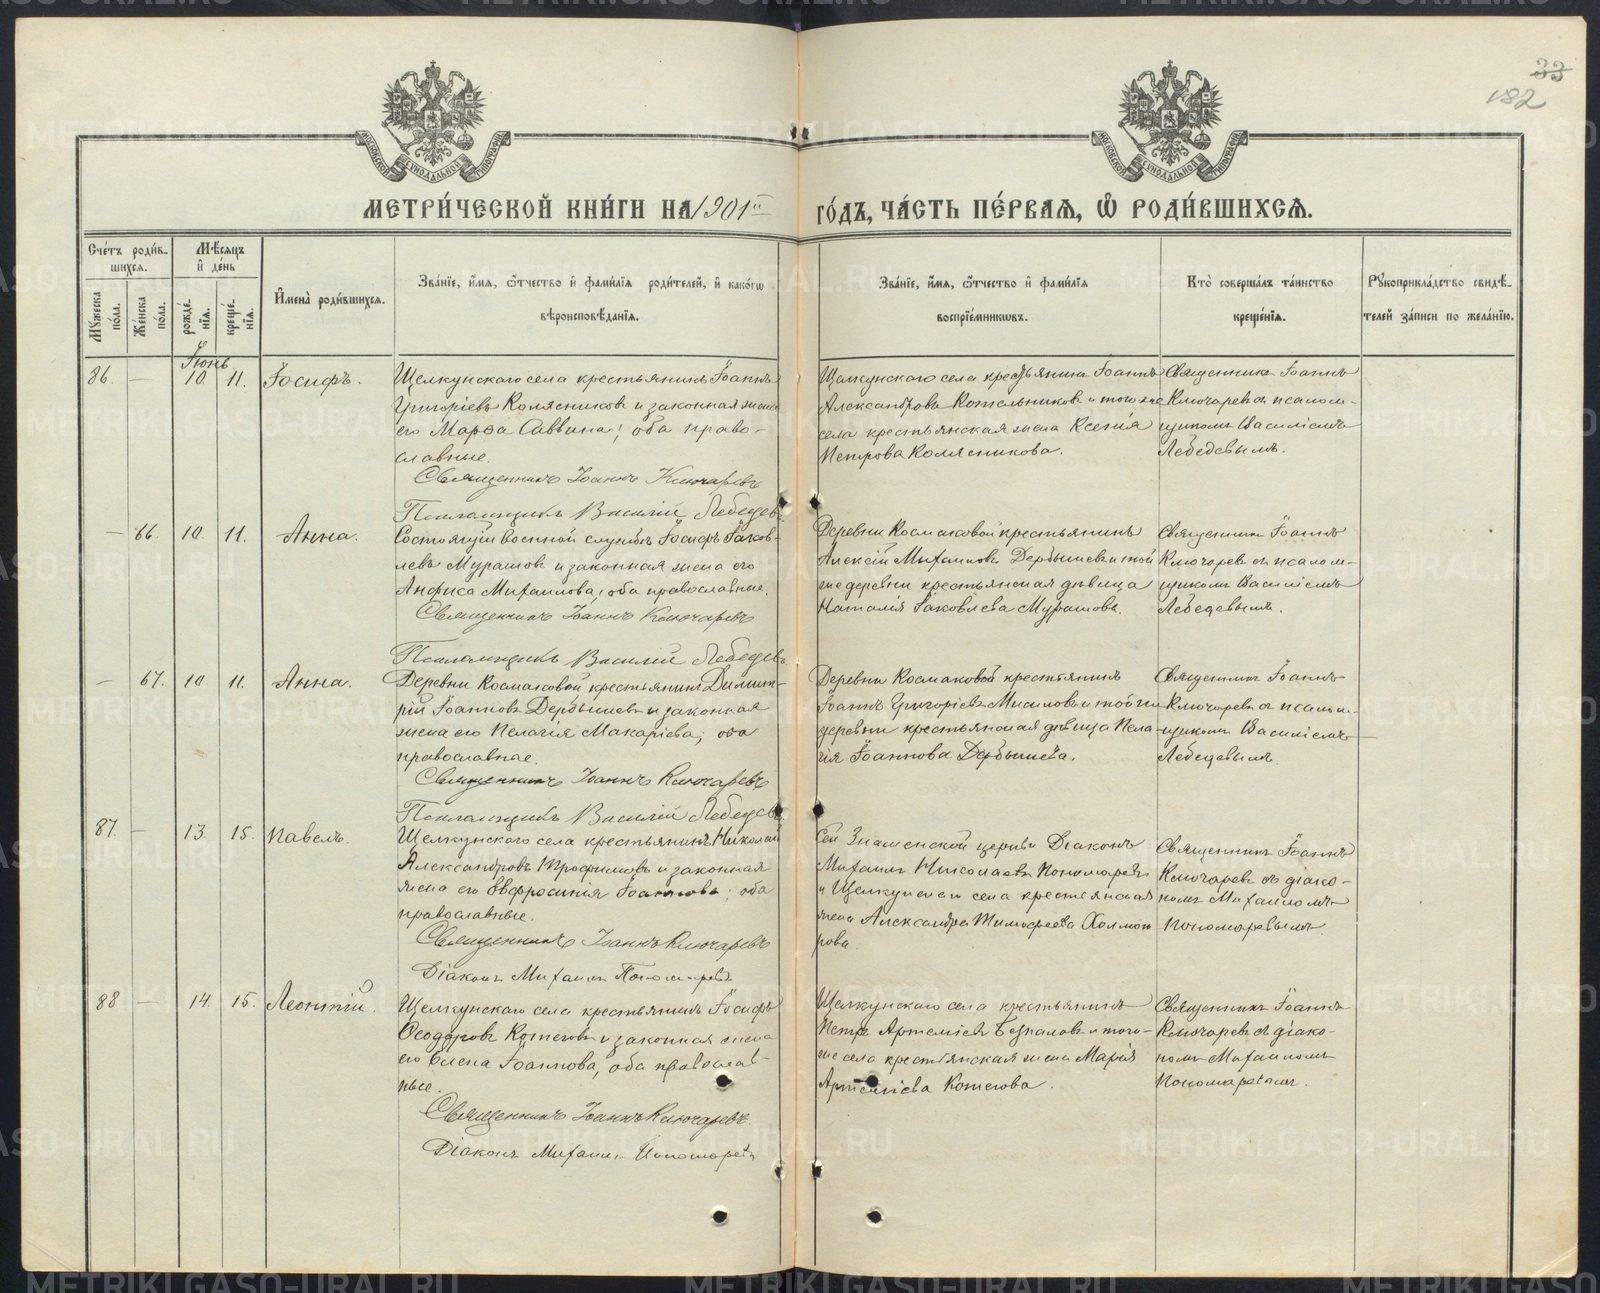 33
182
МЕТРИ́ЧЕСКОЙ КНИ́ГИ НА 1901й ГО́ДЪ, ЧА́СТЬ ПЕ́РВАЯ, Ѽ РОДИ́ВШИХСЯ.
Сче́тъ роди́вшихся.
Му́жеска по́ла.
Же́нска по́ла.
Мѣ́сяцъ и҆ де́нь
рожде́нїя.
креще́нїя.
И҆мена̀ роди́вшихся.
Зва́нїе, и҆́мя, ѻ҆́тчество и҆ фами́лїя роди́телей, и҆ како́гѡ
вѣроисповѣ́данїя.
Зва́нїе, и҆́мя, ѻ҆́тчество и҆ фами́лїя
воспрїе́мникѡвъ.
Кто̀ соверша́лъ та́инство
креще́нїя.
Рꙋкоприкла́дство свидѣ́-
телей за́писи по жела́нїю.
Іюнь
86. — 10. 11. Іосифъ.
Щелкунскаго села крестьянинъ Іоаннъ
Григоріевъ Колясниковъ и законная жена
его Марѳа Саввина; оба право-
славные.
Священникъ Іоаннъ Ключаревъ
Псаломщикъ Василій Лебедевъ
Щелкунскаго села крестьянинъ Іоаннъ
Александровъ Котельниковъ и того же
села крестьянская жена Ксенія
Петрова Колясникова.
Священникъ Іоаннъ
Ключаревъ съ псалом-
щикомъ Василіемъ
Лебедевымъ.
— 66. 10. 11. Анна.
Состоящій военной службѣ Іосифъ Іаков-
левъ Мурашовъ и законная жена его
Анфиса Михаилова; оба православные.
Священникъ Іоаннъ Ключаревъ
Псаломщикъ Василій Лебедевъ
Деревни Космаковой крестьянинъ
Алексій Михаиловъ Дербышевъ и той
же деревни крестьянская дѣвица
Наталія Іаковлева Мурашова.
Священникъ Іоаннъ
Ключаревъ съ псалом-
щикомъ Василіемъ
Лебедевымъ.
— 67. 10. 11. Анна.
Деревни Космаковой крестьянинъ Димит-
рій Іоанновъ Дербышевъ и законная
жена его Пелагія Макаріева; оба
православные.
Священникъ Іоаннъ Ключаревъ
Псаломщикъ Василій Лебедевъ
Деревни Космаковой крестьянинъ
Іоаннъ Григоріевъ и той же
деревни крестьянская дѣвица Пела-
гія Іоаннова Дербышева.
Священникъ Іоаннъ
Ключаревъ съ псалом-
щикомъ Василіемъ
Лебедевымъ.
87. — 13. 15. Павелъ.
Щелкунскаго села крестьянинъ Николай
Александровъ Трофимовъ и законная
жена его Евфросинія Іоаннова; оба
православные.
Священникъ Іоаннъ Ключаревъ
Діаконъ Михаилъ Пономаревъ
Сей Знаменской церкви Діаконъ
Михаилъ Николаевъ Пономаревъ
и Щелкунскаго села крестьянская
жена Александра Тимофеева Холмого
рова.
Священникъ Іоаннъ
Ключаревъ съ діако-
номъ Михаиломъ
Пономаревымъ.
88 — 14. 15. Леонтій.
Щелкунскаго села крестьянинъ Іосифъ
Ѳеодоровъ Котеговъ и законная жена
его Елена Іоаннова; оба православ-
ные.
Священникъ Іоаннъ Ключаревъ
Діаконъ Михаилъ Пономаревъ
Щелкунскаго села крестьянинъ
Петръ Артеміевъ Безпаловъ и того-
же села крестьянская жена Марія
Артеміева Котегова.
Священникъ Іоаннъ
Ключаревъ съ діако-
номъ Михаиломъ
Пономаревымъ.
METRIKI.GASO-URAL.RU